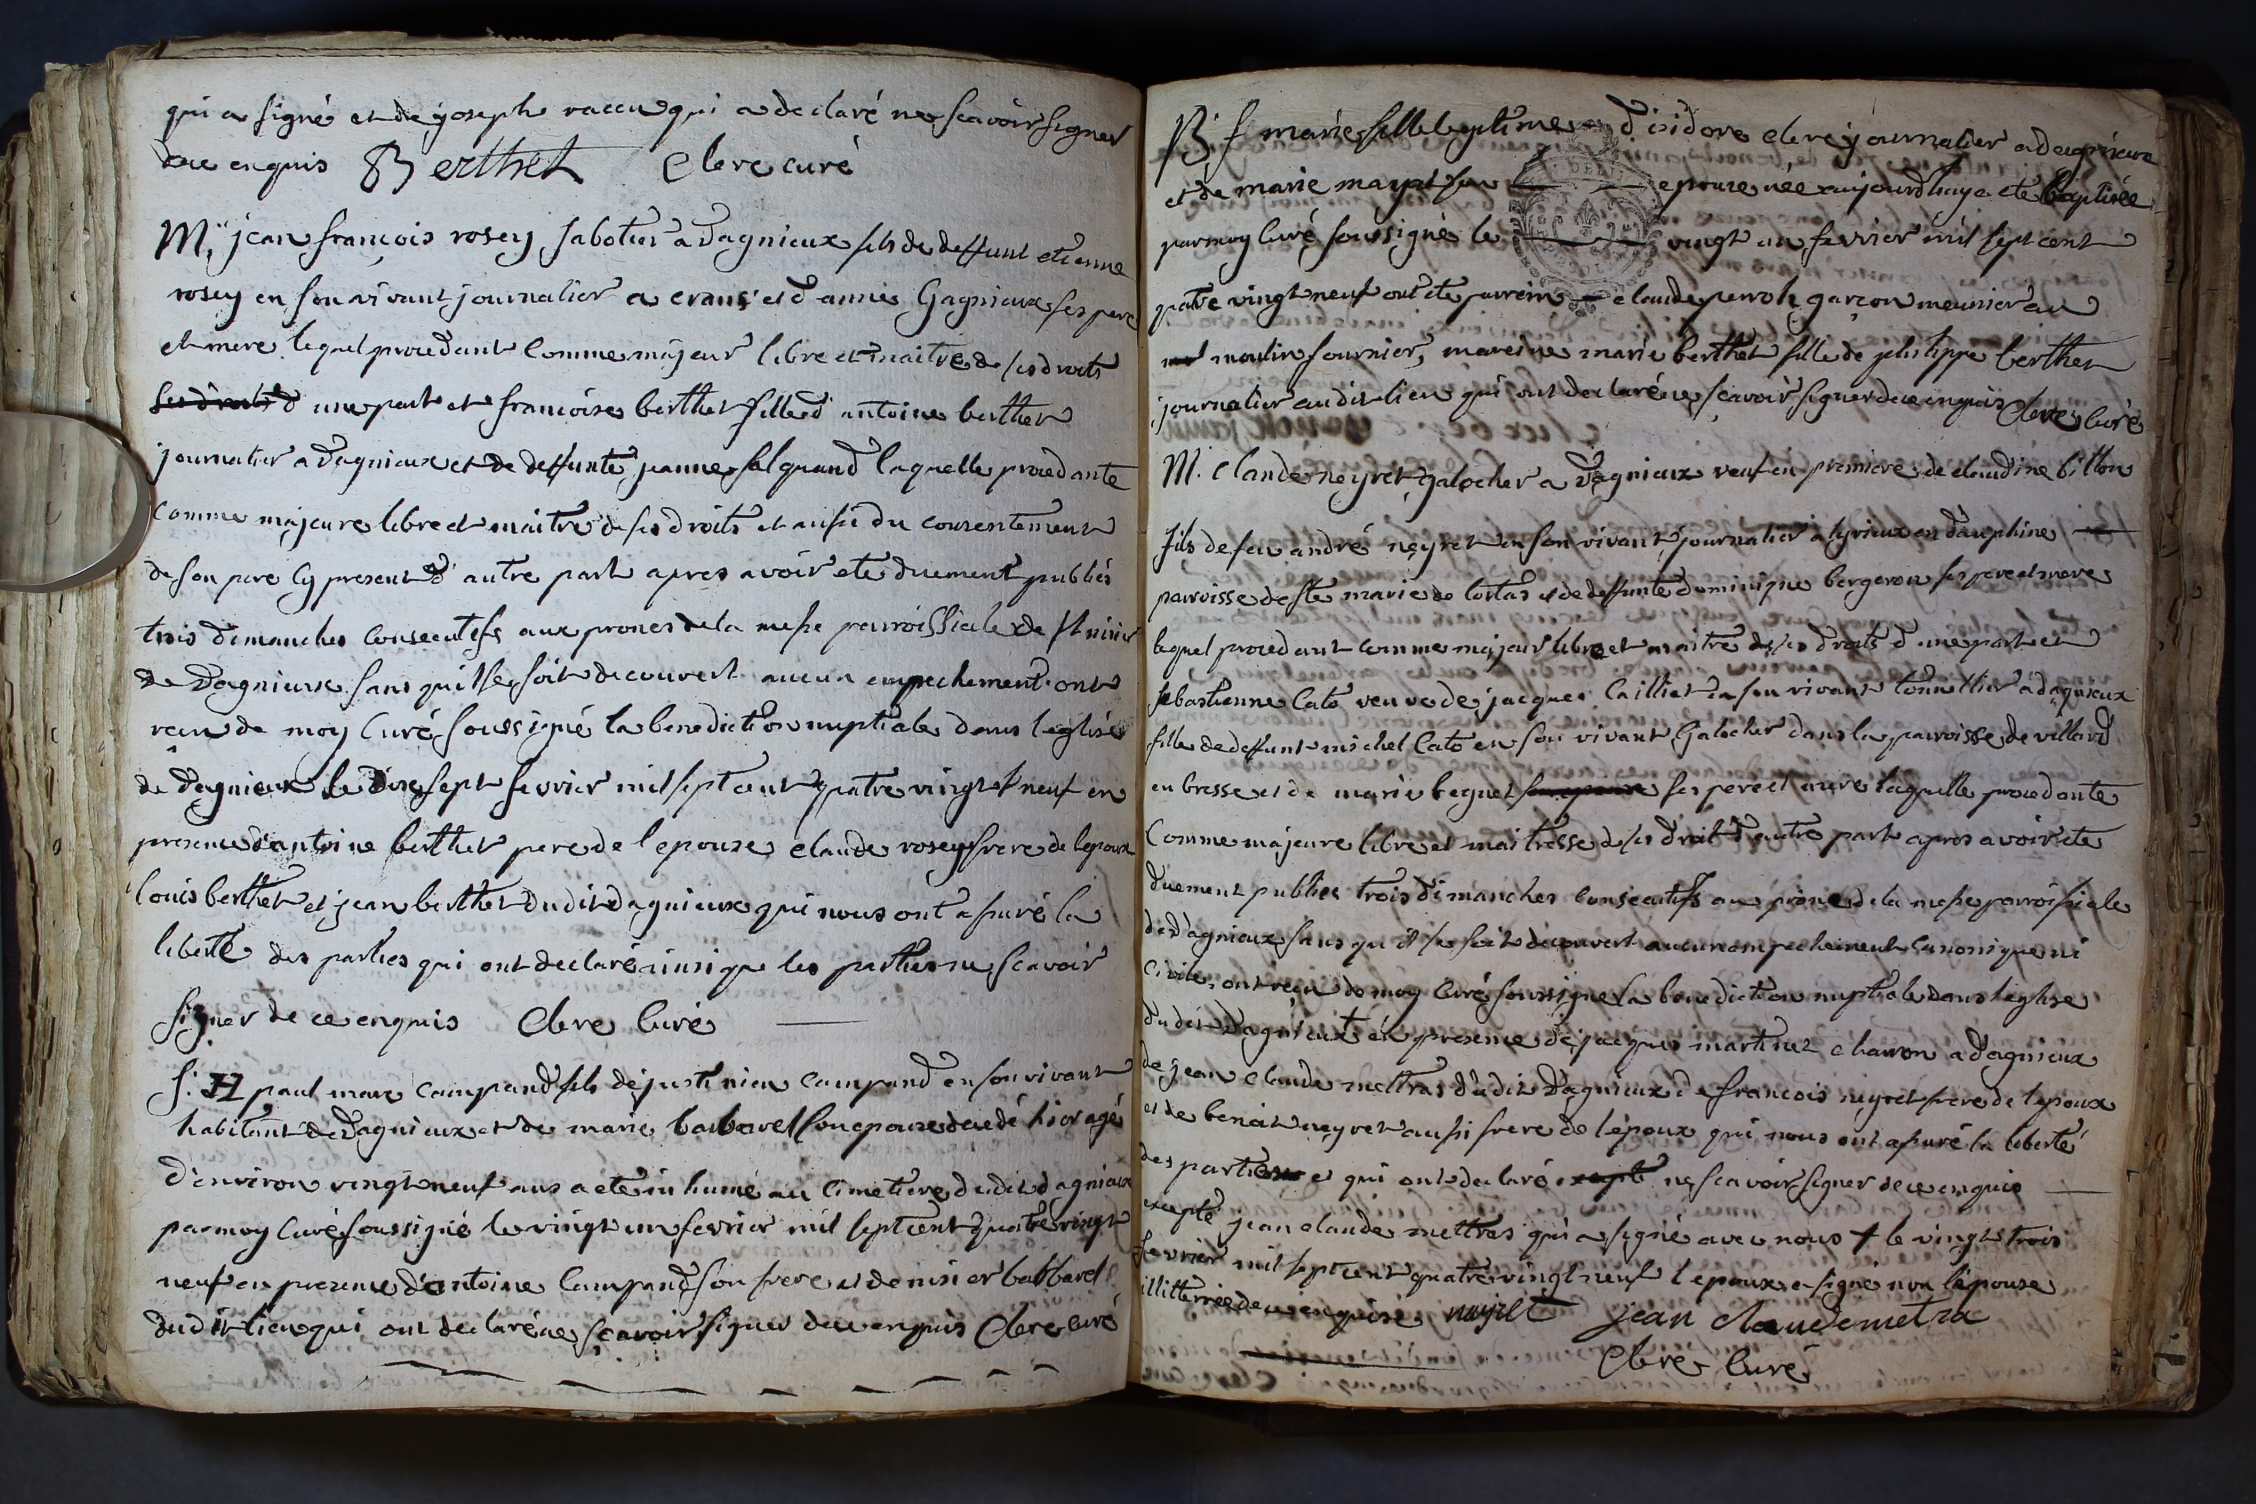 qui a signé et de joseph raccu qui a declaré ne scavoir signer
dece enquis Berthet Clerc curé
M. jean françois rosey sabotier a dagnieux fils de deffunt etienne
rosey en son vivant journalier a crans et d'annie Gagnieux ses pere
et mere lequel procedant comme majeur libre et maitre de ses droits
ses droits d une part et francoise berthet fille d antoine berthet
journalier a dagnieux et de deffunte jeanne falquand laquelle procedante
comme majeure libre et maitre de ses droits et aussi du consentement
de son pere cy present d' autre part apres avoir ete duement publiés
trois dimanches consecutifs aux prones de la messe parroissiale de st nisier
de Dagnieux sans qu il se soit decouvert aucun empechement ont
recu de moy Curé soussigné la benediction nuptiale dans l'eglise
de dagnieux le dix sept fevrier mil sept cent quatre vingt neuf en
presence d'antoine berthet pere de l epouse claude rosey frere de lepoux
louis berthet et jean berthet dudit dagnieux qui nous ont assuré la
liberté des parties qui ont declaré ainsi que les parties ne scavoir
signer de ce enquis Clerc Curé
S. H paul marc campand fils de justinien campand en son vivant
habitant de Dagnieux et de marie barbaret son epouse decedé hier agé
d'environ vingt neuf ans a eté inhumé au Cimetiere dudit dagnieux
par moy Curé soussigné le vingt un fevrier mil sept cent quatre vingt
neuf en presence d'antoine Campand son frere et de nisier barbaret
dudit lieu qui ont declaré ne scavoir signer dece enquis Clerc curé
B. f marie fille legitime d'isidore clerc journalier a dagnieux
et de marie epouse née aujourd'huy a eté baptisée
par moy Curé soussigné le vingt un fevrier mil sept cent
quatre vingt neuf ont ete parrein claude perroh garçon meunier au
moulin fournier, mareine marie berthet fille de philippe berthet
journalier audit lieu qui ont declaré ne sçavoir signer dece enquis Clerc Curé
M. Claude neyret galocher a dagnieux veuf en premiere de claudine billon
fils de feu andré neyret en son vivant journalier a hyrieux en dauphine
parroisse de ste marie de tortas et de deffunte dominique bergeron ses pere et mere
lequel procedant comme majeur libre et maitre de ses droits d une part et
sebastienne Cato veuve de jacques Cailliet en son vivant tonnellier a dagnieux
fille de deffunt michel Cato en son vivant Galocher dans la parroisse de villard
en bresse et de marie beguet son epouse ses pere et mere laquelle procedante
Comme majeure libre et maitresse de ses droits d'autre part apres avoir ete
duement publiés trois dimanches consecutifs au prone de la messe parroissiale
de dagnieux sans qu il se soit decouvert aucun empechement Canonique ni
Civile, ont reçu de moy Curé soussigné la benediction nuptiale dans l'eglise
dudit dagnieux en presence de jacques martinet charron a dagnieux
de jean claude mettras dudit dagnieux de francois neyret frere de lepoux
et de benoit neyret aussi frere de l'epoux qui nous ont assuré la liberté
des parties et qui ont declaré excepté ne scavoir signer de ce enquis
excepté jean claude mettras qui a signé avec nous + le vingt trois
fevrier mil sept cent quatre vingt neuf l epoux a signé non l'epouse
illitterrée dece enquise neyret jean claude metra
Clerc Curé